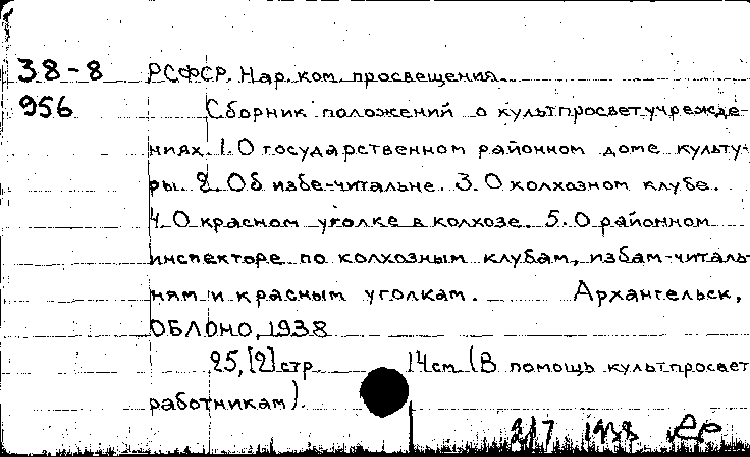 38-8 РСФСР. Нар. ком. просвещения.
956 Сборник положений о культпросветучрежде-
ниях. 1. О государственном районном доме культу-
ры. 2. Об избе-читальне. 3. О колхозном клубе.
4. О красном уголке в колхозе. 5. О районном
инспекторе по колхозным клубам, избам-читаль-
ням и красным уголкам. Архангельск,
ОБЛОНО, 1938
25, [2] стр 14 см (В помощь культпросвет
работникам).
2/7 1938